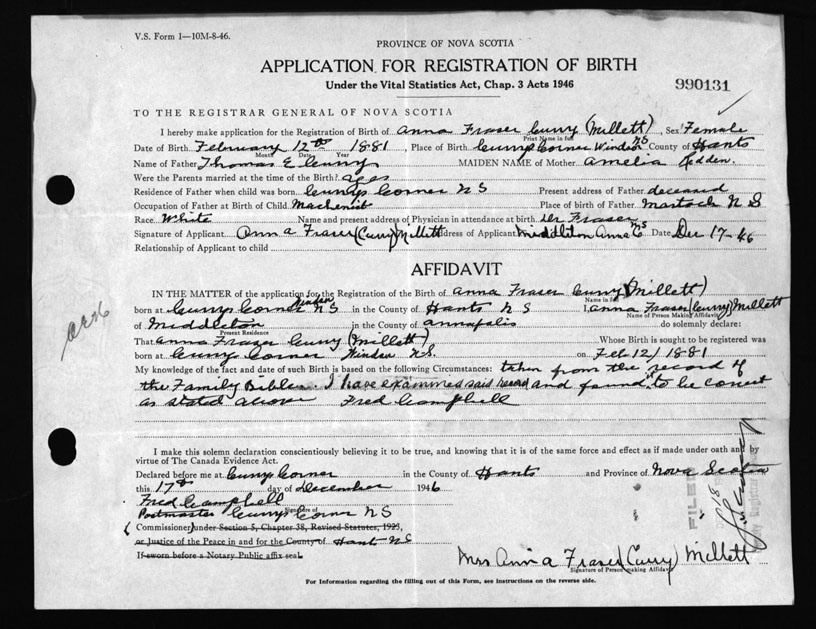 V.S. Form 1—10M-8-46.
PROVINCE OF NOVA SCOTIA
APPLICATION FOR REGISTRATION OF BIRTH
Under the Vital Statistics Act, Chap. 3 Acts 1946
990131
TO THE REGISTRAR GENERAL OF NOVA SCOTIA
I hereby make application for the Registration of Birth of Anna Fraser Curry (Millett), Sex Female
Print Name in full
Date of Birth February 12th 1881, Place of Birth Currys Corner Windsor NS County of Hants
Month Date Year
Name of Father Thomas E Curry MAIDEN NAME of Mother Amelia Redden.
Were the Parents married at the time of the Birth? Yes
Residence of Father when child was born Currys Corner N S Present address of Father deceased
Occupation of Father at Birth of Child Machenist Place of birth of Father Martock N S
Race White Name and present address of Physician in attendance at birth Dr Fraser
Signature of Applicant Anna Fraser (Curry) Millett Address of Applicant Middleton Anna Co NS Date Dec 17-46
Relationship of Applicant to child
AFFIDAVIT
IN THE MATTER of the application for the Registration of the Birth of Anna Fraser Curry (Millett)
Name in full
born at Currys Corner Windsor NS in the County of Hants N S I, Anna Fraser (Curry) Millett
Name of Person Making Affidavit
of Middleton in the County of Annapolis do solemnly declare:
Present Residence
That Anna Fraser Curry (Millett) Whose Birth is sought to be registered was
born at Currys Corner Windsor N.S. on Feb 12/1881
My knowledge of the fact and date of such Birth is based on the following Circumstances: taken from the record of
the Family Bible. I have examined said record and found it to be correct
as stated above Fred Campbell
I make this solemn declaration conscientiously believing it to be true, and knowing that it is of the same force and effect as if made under oath and by
virtue of The Canada Evidence Act.
Declared before me at Currys Corner in the County of Hants and Province of Nova Scotia
this 17th day of December 1946
Fred Campbell
Signature of
Postmaster Currys Corner N S
(Commissioner) under Section 5, Chapter 38, Revised Statutes, 1923,
or Justice of the Peace in and for the County of Hants NS
If sworn before a Notary Public affix seal.
Mrs Anna Fraser (Curry) Millett
Signature of Person making Affidavit
For Information regarding the filling out of this Form, see instructions on the reverse side.
FILED